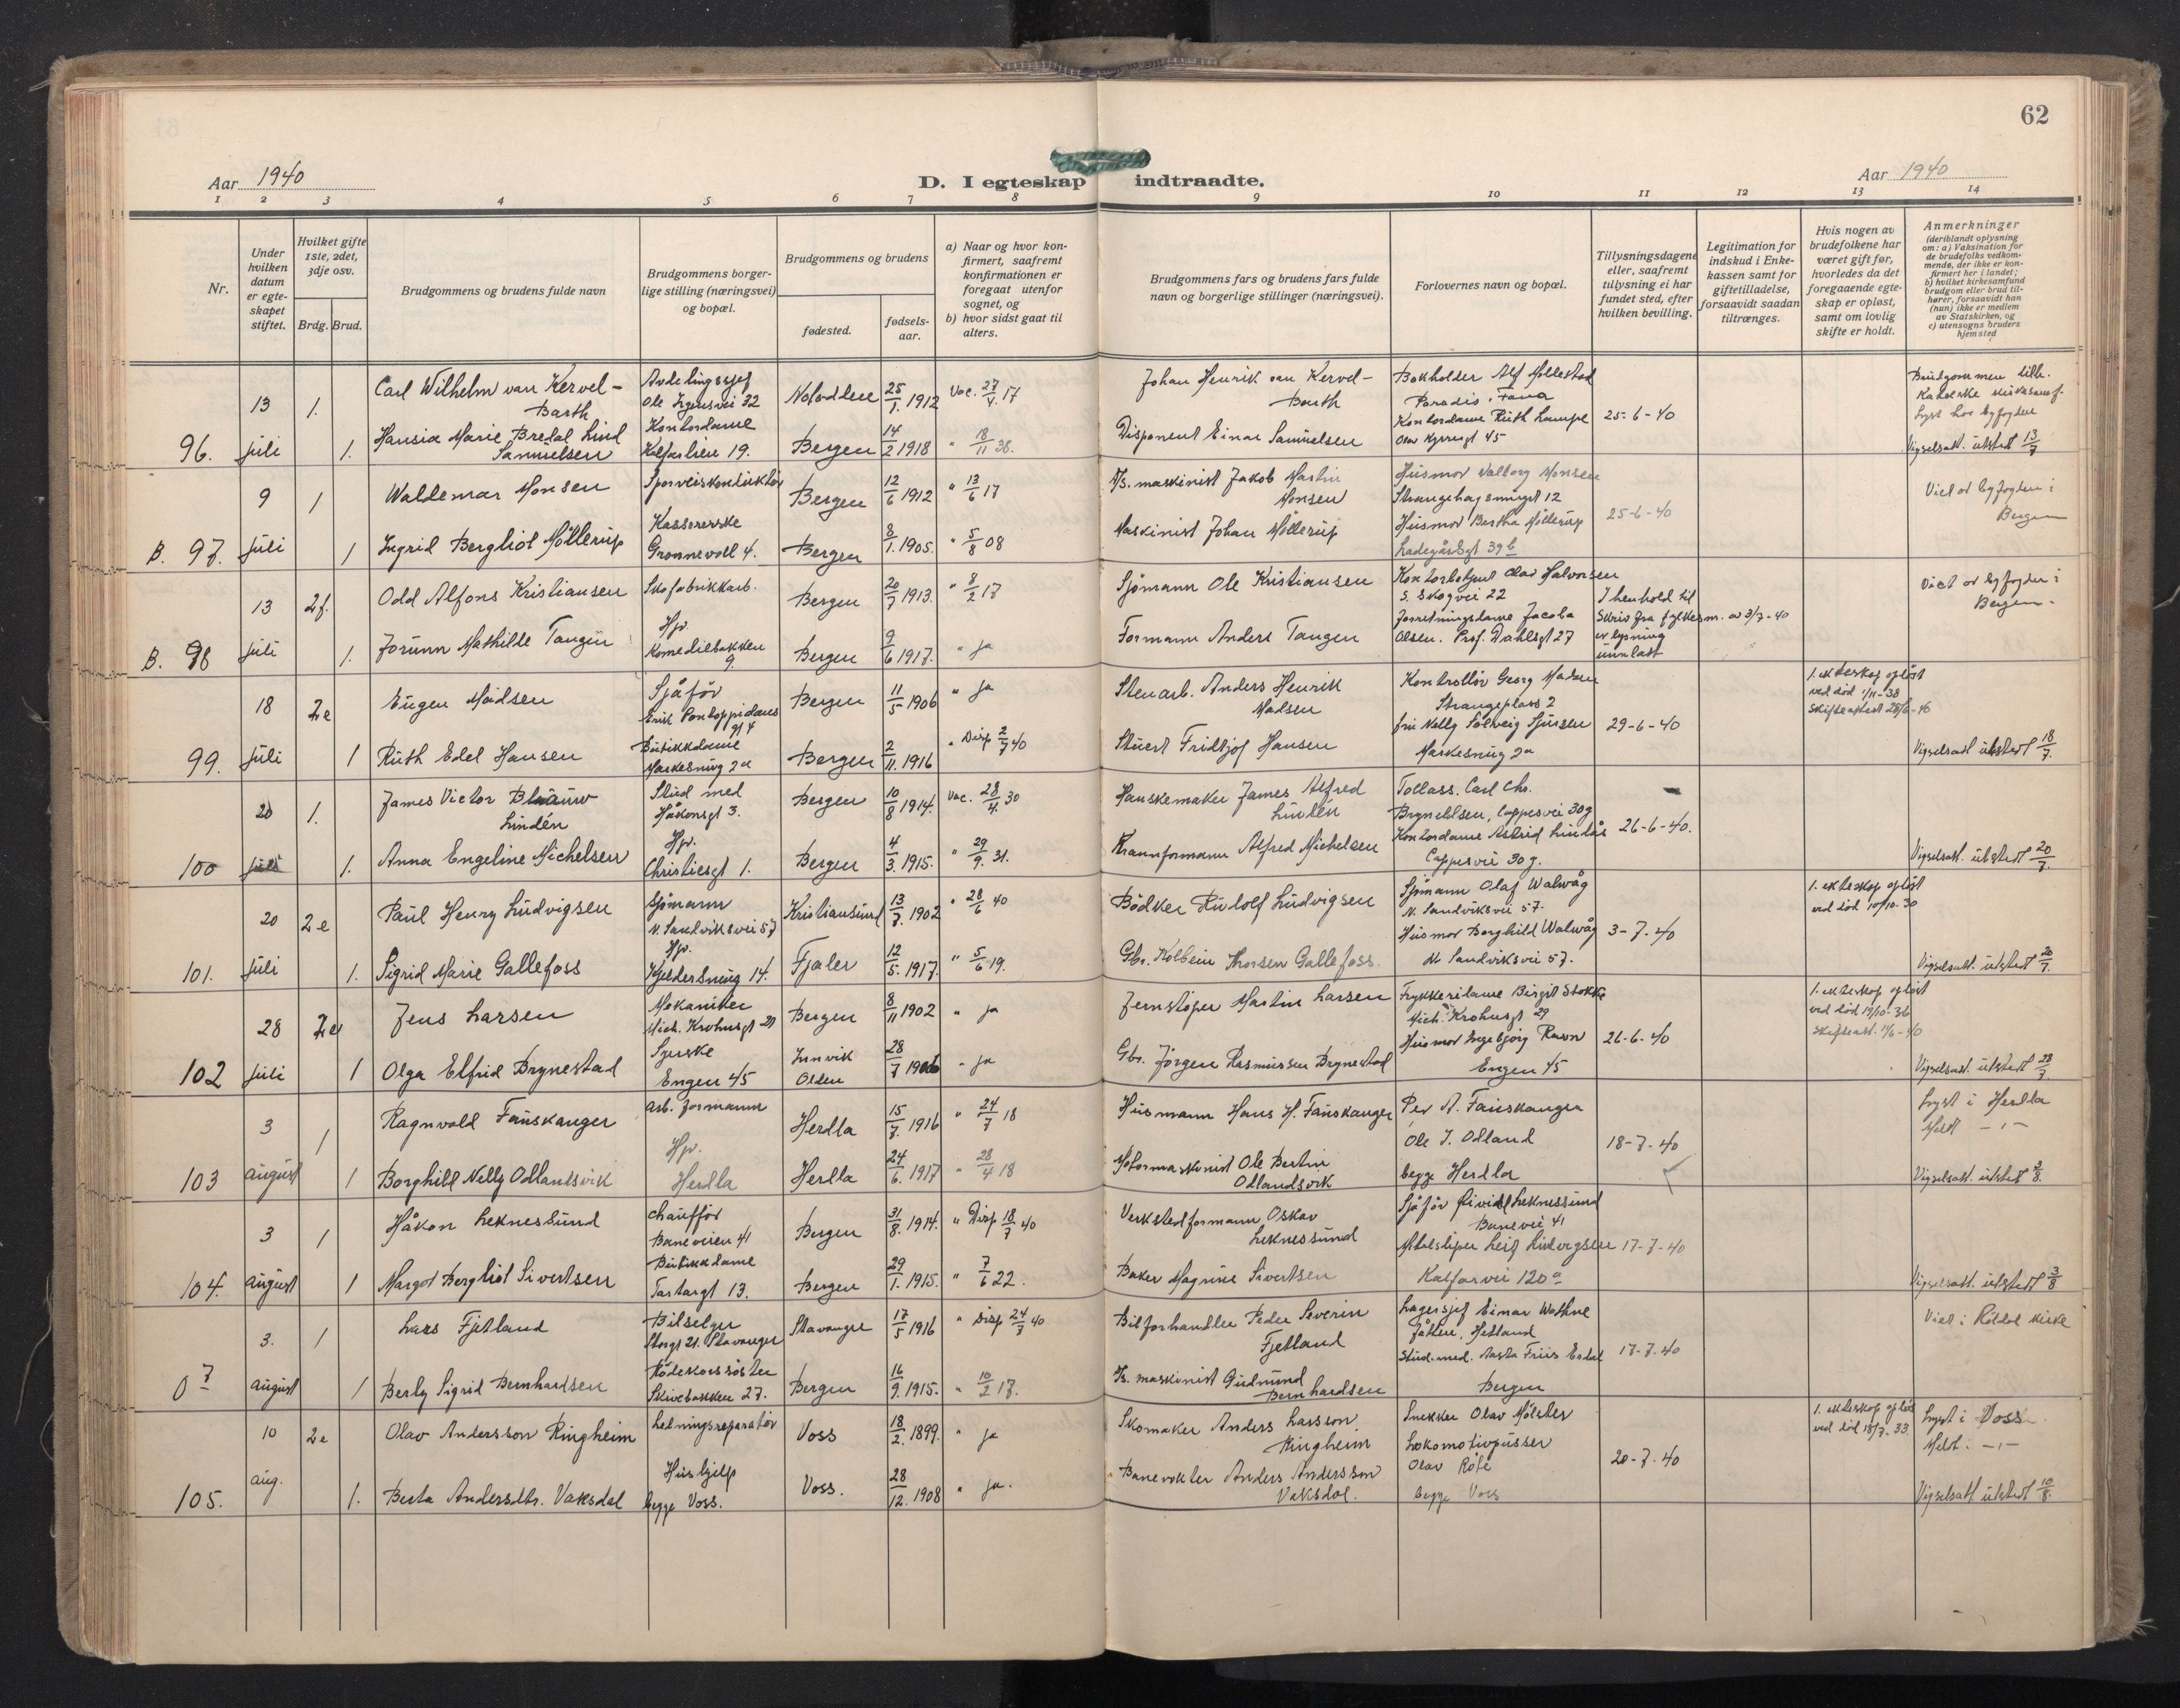 62
Aar 1940
D. I egteskap indtraadte.
Aar 1940
1 2 3 4 5 6 7 8 9 10 11 12 13 14
Nr.
Under hvilken datum er egteskapet stiftet.
Hvilket gifte 1ste, 2det, 3dje osv.
Brdg. Brud.
Brudgommens og brudens fulde navn
Brudgommens borgerlige stilling (næringsvei) og bopæl.
Brudgommens og brudens
fødested.
fødselsaar.
a) Naar og hvor konfirmert, saafremt konfirmationen er foregaat utenfor sognet, og
b) hvor sidst gaat til alters.
Brudgommens fars og brudens fars fulde navn og borgerlige stillinger (næringsvei).
Forlovernes navn og bopæl.
Tillysningsdagene eller, saafremt tillysning ei har fundet sted, efter hvilken bevilling.
Legitimation for indskud i Enkekassen samt for giftetilladelse, forsaavidt saadan tiltrænges.
Hvis nogen av brudefolkene har været gift før, hvorledes da det foregaaende egteskap er opløst, samt om lovlig skifte er holdt.
Anmerkninger
(deriblandt oplysning om: a) Vaksination for de brudefolks vedkommende, der ikke er konfirmert her i landet;
b) hvilket kirkesamfund brudgom eller brud tilhører, forsaavidt han (hun) ikke er medlem av Statskirken, og
c) utensogns bruders hjemsted
13 1. Carl Wilhelm van Kervel-Barth Avdelingssjef 25/1. 1912 Vac. 27/4. 17 Johan Henrik van Kervel-Barth Bokholder Alf Møllestad Paradis, Fana
96. juli 1. Hansia Marie Bredal Lind Samuelsen Kontordame Kalfarlien 19. Bergen 14/2 1918 " 18/11 38. Disponent Einar Samuelsen Kontordame Ruth Lampe Olav Kyrresgt 45 25-6-40 Brudgommen tilh. Katolske kirkesamf. Lyst hos byfogden Vigselsatt. utstedt 13/7
9 1 Waldemar Monsen Sporveiskonduktør Bergen 12/6 1912 " 13/6 17 M/s. maskinist Jakob Martin Monsen Husmor Valborg Monsen Strangehagsmuget 12
B. 97. juli 1 Ingrid Bergliot Møllerup Kassererske Grønnevoll 4. Bergen 8/1. 1905. " 5/8 08 Maskinist Johan Møllerup Husmor Bertha Møllerup Ladegårdsgt 39b 25-6-40 Viet av byfogden i Bergen
13 2f. Odd Alfons Kristiansen Skofabrikkarb. Bergen 20/7 1913. " 8/2 17 Sjømann Ole Kristiansen Kontorbetjent Olav Halvorsen S. Skogvei 22
B. 98 juli 1. Jorunn Mathilde Tangen Hjv. Komediebakken 9. Bergen 9/6 1917. " ja Formann Anders Tangen Forretningsdame Jacoba Olsen. Prof. Dahlsgt 27 I henhold til Skriv fra fylkesm. av 3/7-40 er lysning unnlatt Viet av byfogden i Bergen.
18 2e Eugen Madsen Sjåfør Erik Pontoppidans gt 4 Bergen 11/5 1906 " ja Stenarb. Anders Henrik Madsen Kontrollør Georg Madsen Strangeplass 2 1. ekteskap opløst ved død 1/11-38
99. juli 1 Ruth Edel Hansen Butikkdame Markesmug 2a Bergen 2/11. 1916 " Disp 2/7 40 Stuert Fridtjof Hansen frk Nelly Solveig Sjursen Markesmug 2a 29-6-40 Vigselsatt utstedt 18/7.
20 1. James Victor Blauuw Lindén Stud med Håkonsgt 3. Bergen 10/8 1914. Vac. 28/4. 30 Hanskemaker James Alfred Lindén Tollass. Carl Chr. Brynildsen, Cappesvei 30g
100 juli 1. Anna Engeline Michelsen Hjv. Christiesgt 1. Bergen 4/3. 1915. " 29/9. 31. Krannformann Alfred Michelsen Kontordame Astrid Lindås Cappesvei 30g. 26-6-40. Vigselsatt. utstedt 20/7.
20 2e Paul Henry Ludvigsen Sjømann N. Sandviksvei 57 Kristiansund 13/7. 1902 " 28/6 40 Bødker Rudolf Ludvigsen Sjømann Olaf Walvåg N. Sandviksvei 57. 1. ekteskap opløst ved død 10/10-30
101. juli 1. Sigrid Marie Gallefoss Hjv. Kjeldersmug 14. Fjaler 12/5. 1917. " 5/6 19. Gbr. Kolbein Thorsen Gallefoss. Husmor Borghild Walvåg N. Sandviksvei 57. 3-7-40 Vigselsatt. utstedt 20/7.
28 2e Jens Larsen Mekaniker Mich. Krohnsgt 29 Bergen 8/11 1902 " ja Jernstøper Martin Larsen Trykkeridame Birgit Stokke Mich. Krohnsgt 29 1. ekteskap opløst ved død 19/10-36
102 juli 1 Olga Elfrid Brynestad Syerske Engen 45 Innvik Olden 28/7 1906 " ja Gbr. Jørgen Rasmussen Brynestad Husmor Ingebjørg Ravn Engen 45 26-6-40 Vigselsatt. utstedt 28/7.
3 1 Ragnvald Fauskanger Arb. formann Herdla 15/7. 1916 " 24/7 18 Husmann Hans H. Fauskanger Per A. Fauskanger Lyst i Herdla Meldt -"-
103 august 1 Borghild Nelly Odlandsvik Hjv. Herdla Herdla 24/6. 1917 " 28/4 18 Motormaskinist Ole Bertin Odlandsvik Ole J. Odland begge Herdla 18-7-40 Vigselsatt. utstedt 3/8.
3 1 Håkon Leknessund chauffør Baneveien 41 Bergen 31/8. 1914. " Disp 18/7 40 Verkstedformann Oskar Leknessund Sjåfør Leknessund Banevei 41
104. august 1 Margot Bergliot Sivertsen Butikkdame Tartargt 13. Bergen 29/1. 1915. " 7/6 22. Baker Magnus Sivertsen Metalsliper Leif Ludvigsen Kalfarvei 120a 17-7-40 Vigselsatt. utstedt 3/8
3. 1 Lars Fjetland Bilselger Storgt 21. Stavanger Stavanger 17/5 1916 " Disp 24/7 40 Bilforhandler Peder Severin Fjetland Lagersjef Einar Wathne Jåtten, Hetland Viet i Røldal kirke
0 7 august 1 Berly Sigrid Bernhardsen Rødekorssøster Skivebakken 27. Bergen 16/9. 1915. " 10/2 17. M/s. maskinist Gudmund Bernhardsen Stud. med. Aasta Friis Erdal Bergen 17-7-40
10 2e Olav Andersson Ringheim Ledningsreparatør Voss 18/2. 1899. " ja Skomaker Anders Larsson Ringheim Snekker Olav Mølster 1. ekteskap opløst ved død 18/7-33 Lyst i Voss. Meldt: -"-
105. aug. 1. Berta Andersdtr. Vaksdal Hushjelp begge Voss. Voss. 28/12. 1908 " ja. Banevokter Anders Andersson Vaksdal. Lokomotivpusser Olav Røte begge Voss 20-7-40 Vigselsatt utstedt 10/8.